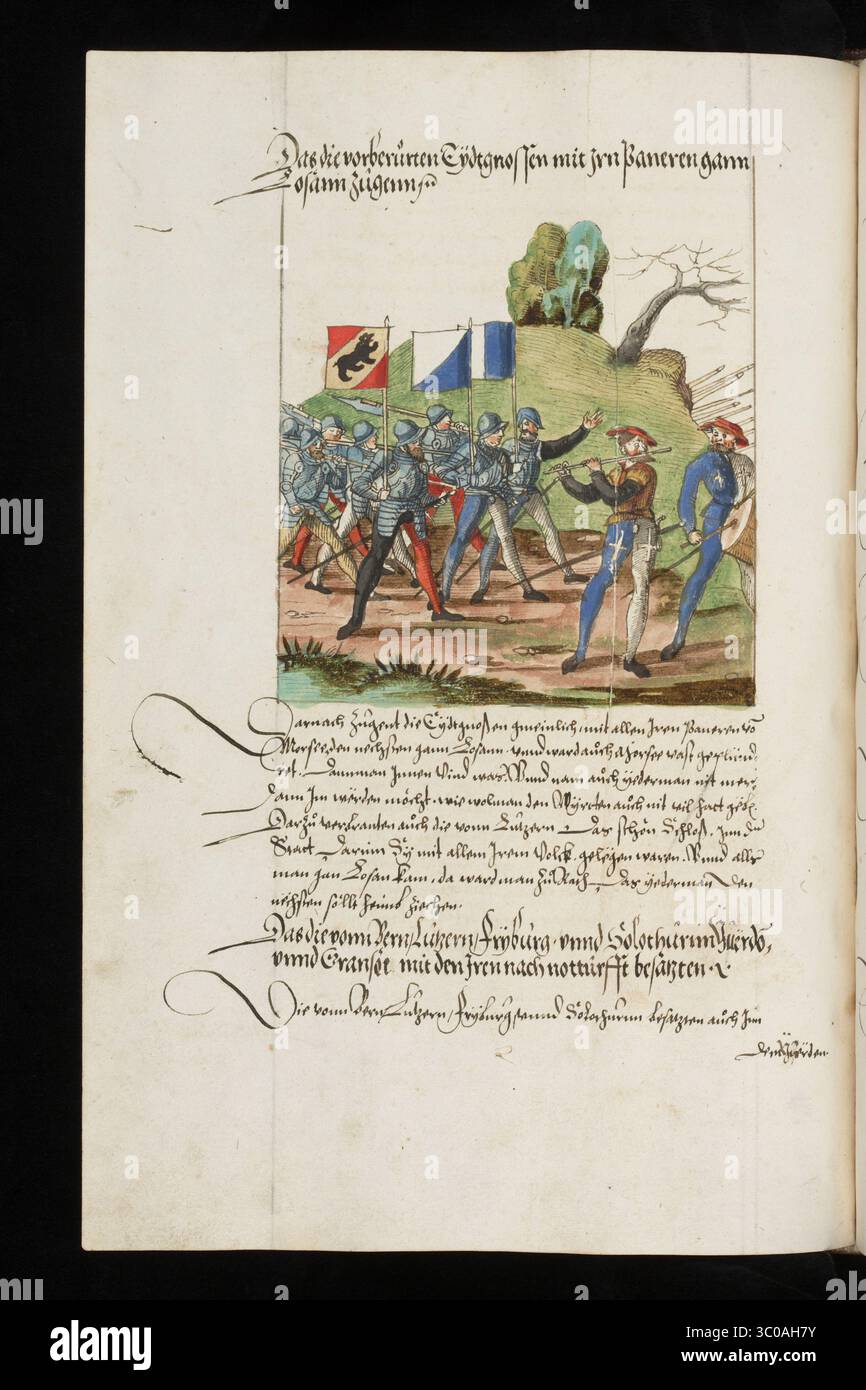 Das die vorberůrten Eydtgnossen mit Irn Paneren gann
Losann Zůgenn
Darnach Zůgent die Eydtgnoßen gmeinlich, mit allen Iren Paneren vō
Morsee den nechsten gann Losann. Vnnd ward auch Morsee vast geplünd-
ret. Dann man Innen Vind was. Vnnd nam auch yederman nit mer,
Dann Im werden möcht. wie wol man den Wyrten auch nit vil hatt gebē.
Darzů verbranten auch die vonn Lutzern Das schön Schloß. Inn der
Statt Darinn Sy mit allem Irem Volck gelegen waren. Vnnd alls
man gan Losan kam, da ward man zů Rath, Das yederman Den
nechsten söllt heimb ziechen.
Das die vonn Bern, Lutzern, Fryburg. vnnd Solothurnn
vnnd Granse mit den Iren nach notturfft besatzten.
Die vonn Bern, Lutzern, Fryburg, vnnd Solothurnn besatzten auch Inn
a
alamy
3C0AH7Y